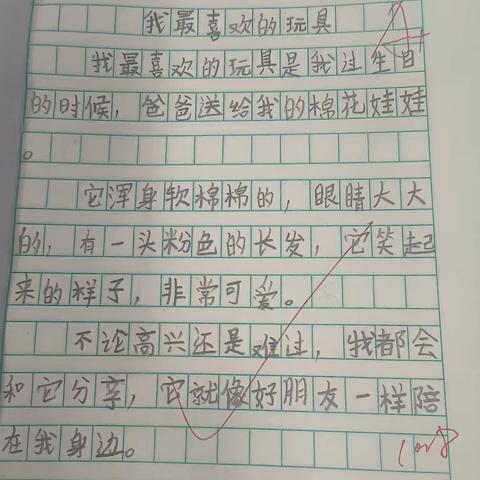 我最喜欢的玩具
我最喜欢的玩具是我过生日
的时候，爸爸送给我的棉花娃娃
。
它浑身软棉棉的，眼睛大大
的，有一头粉色的长发，它笑起
来的样子，非常可爱。
不论高兴还是难过，我都会
和它分享，它就像好朋友一样陪
在我身边。